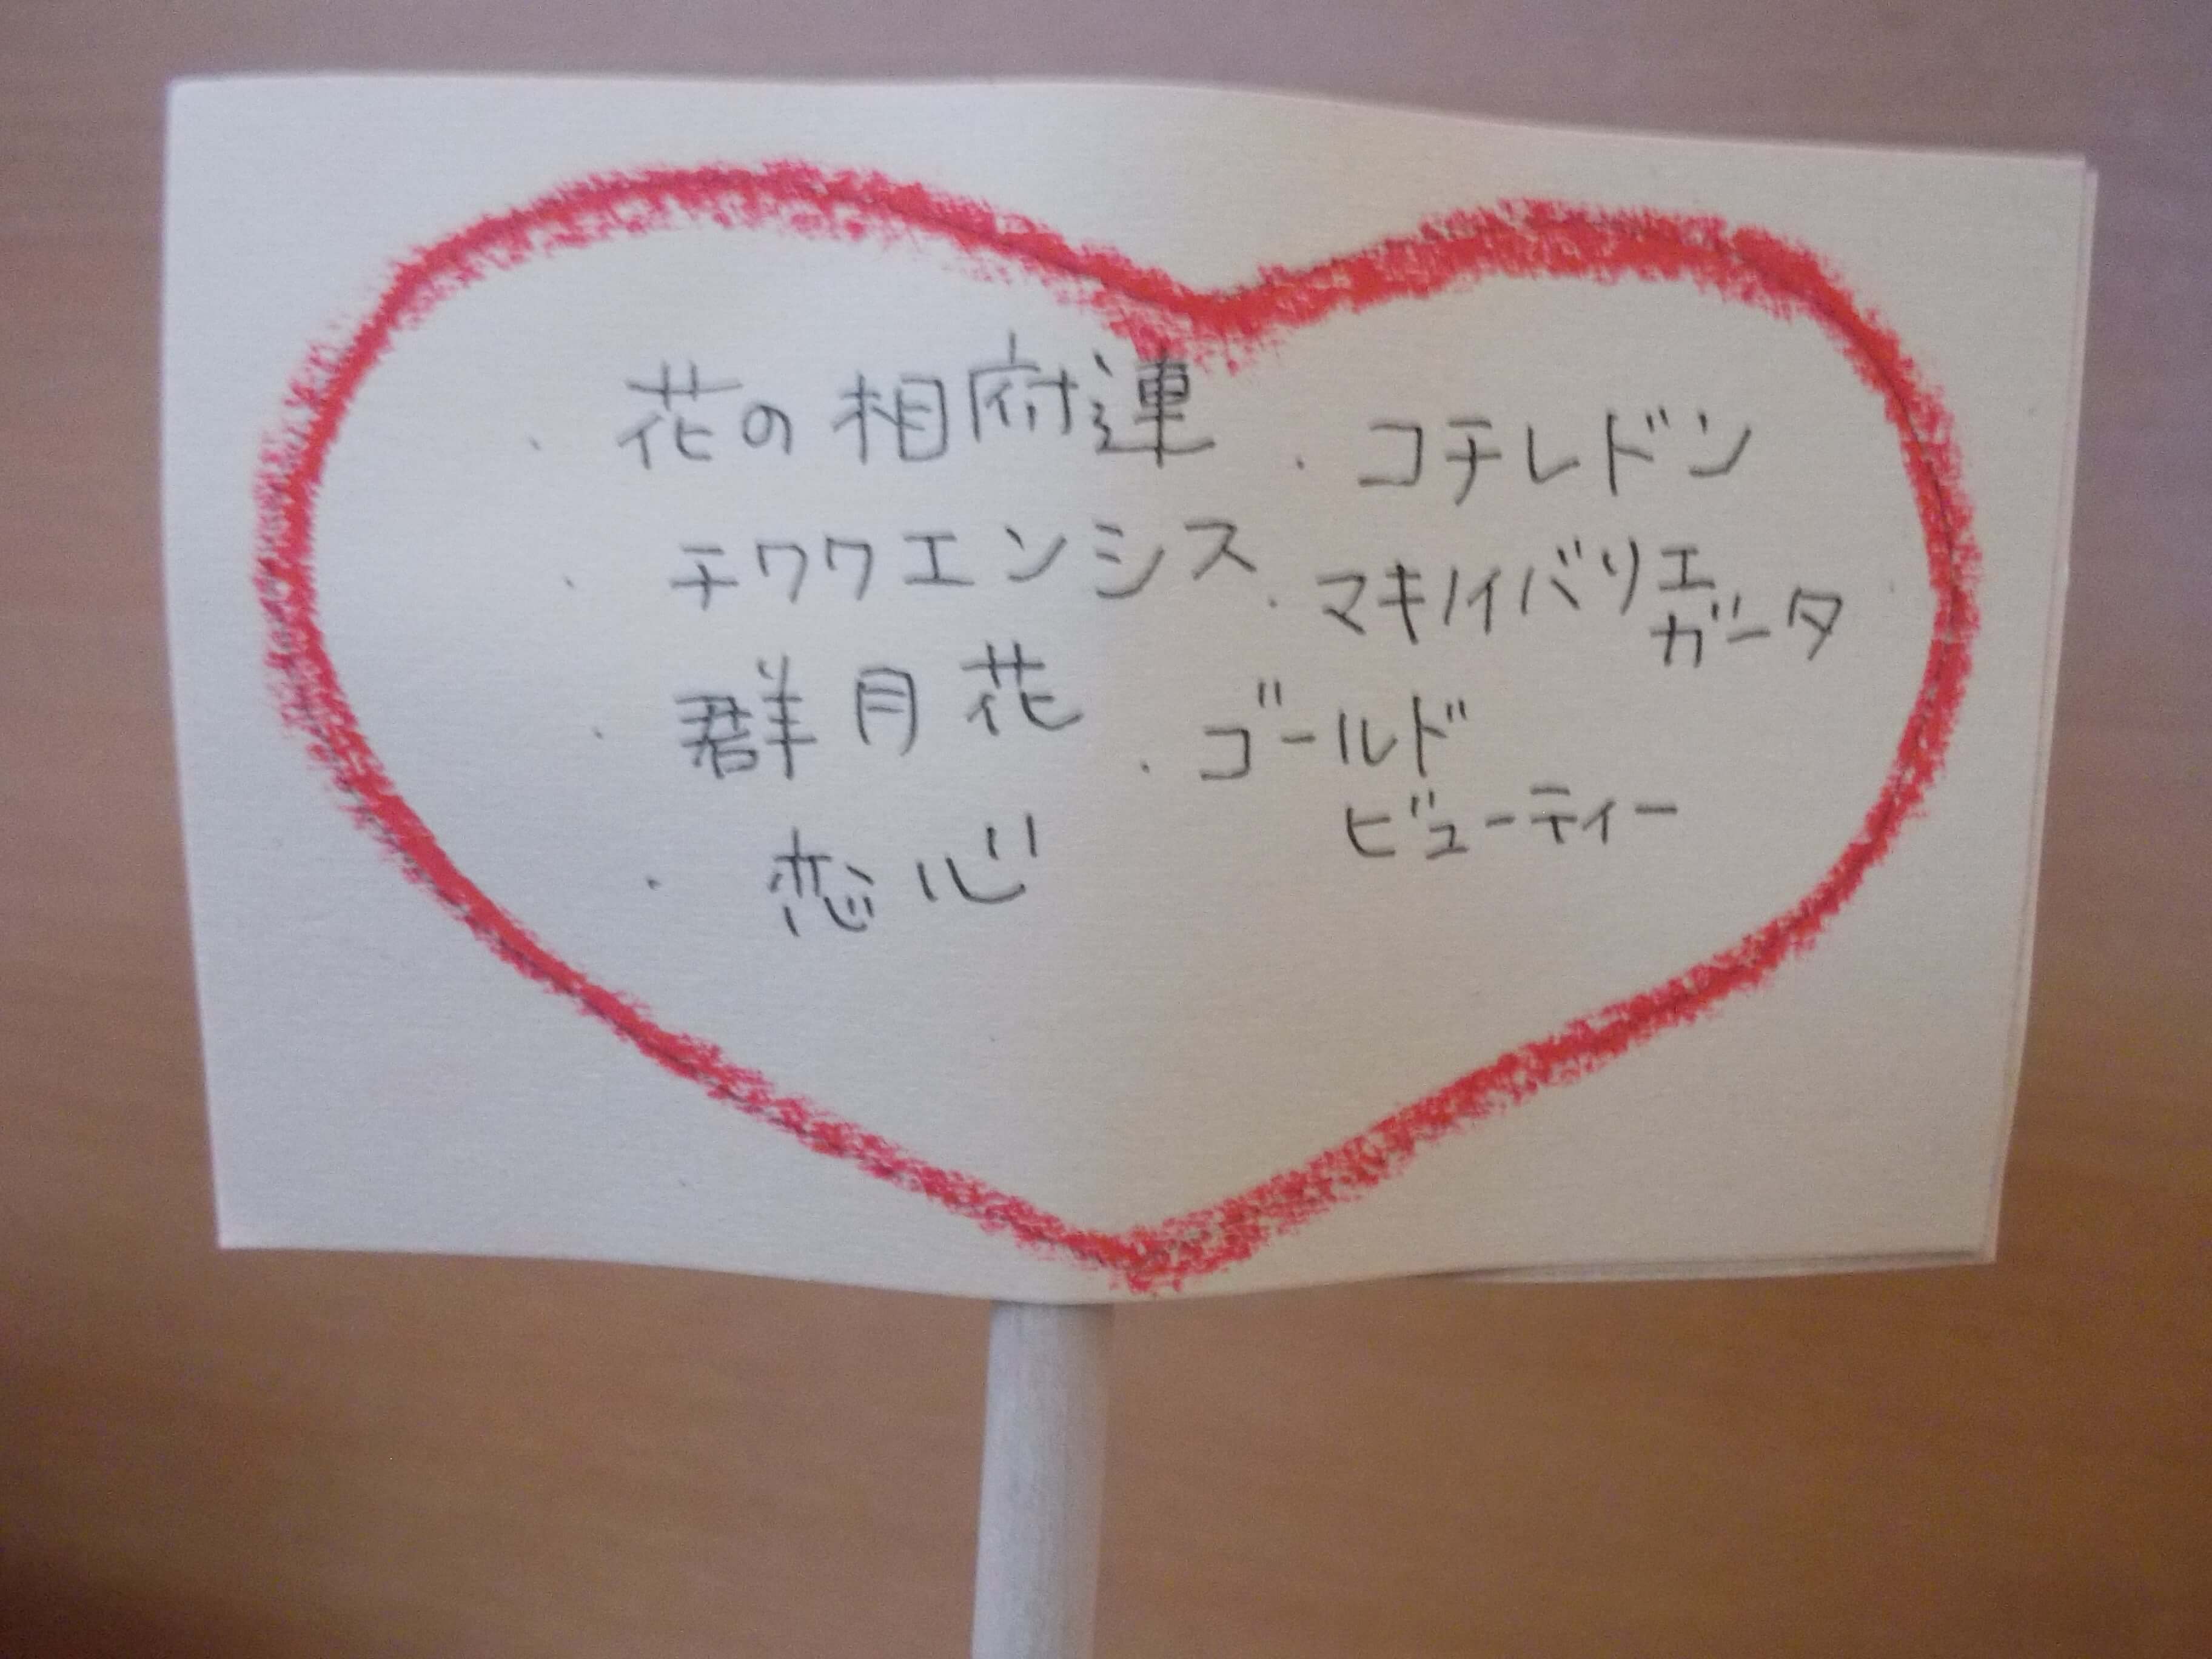 ・花の相府連
・チワワエンシス
・群月花
・恋心
・コチレドン
・マキノイバリエ
ガータ
・ゴールド
ビューティー